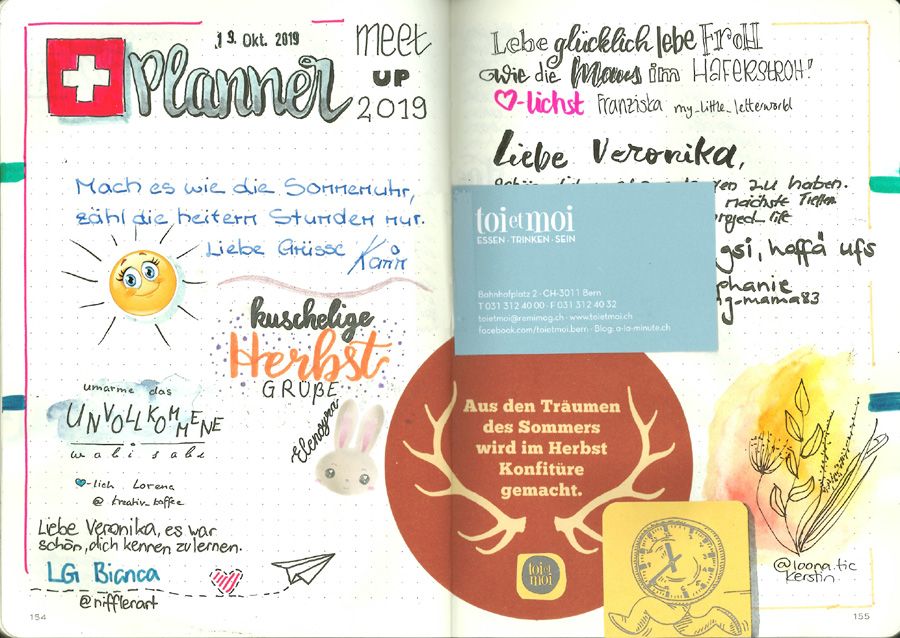 19. Okt. 2019
Planner
meet
UP
2019
Mach es wie die Sonnenuhr,
zähl die heitern Stunden nur.
Liebe Grüsse Karin
kuschelige
Herbst
GRÜßE
umarme das
UNVOLLKOMMENE
wabi sabi
-lich Lorena
@ kreativ_kaffee
Liebe Veronika, es war
schön, dich kennen zu lernen.
LG Bianca
@nifflerart
154
Lebe glücklich lebe FROH
wie die Maus im HAFERSTROH!
-lichst Franziska my_little_letterworld
Liebe Veronika,
zu haben.
nächste Treffen
roject_life
gsi, hoffä ufs
phanie
g-mama83
toi et moi
ESSEN · TRINKEN · SEIN
Bahnhofplatz 2 · CH-3011 Bern
T 031 312 40 00 · F 031 312 40 32
toietmoi@remimag.ch · www.toietmoi.ch
facebook.com/toietmoi.bern · Blog: a-la-minute.ch
Aus den Träumen
des Sommers
wird im Herbst
Konfitüre
gemacht.
toi et
moi
@loona.tic
Kerstin
155